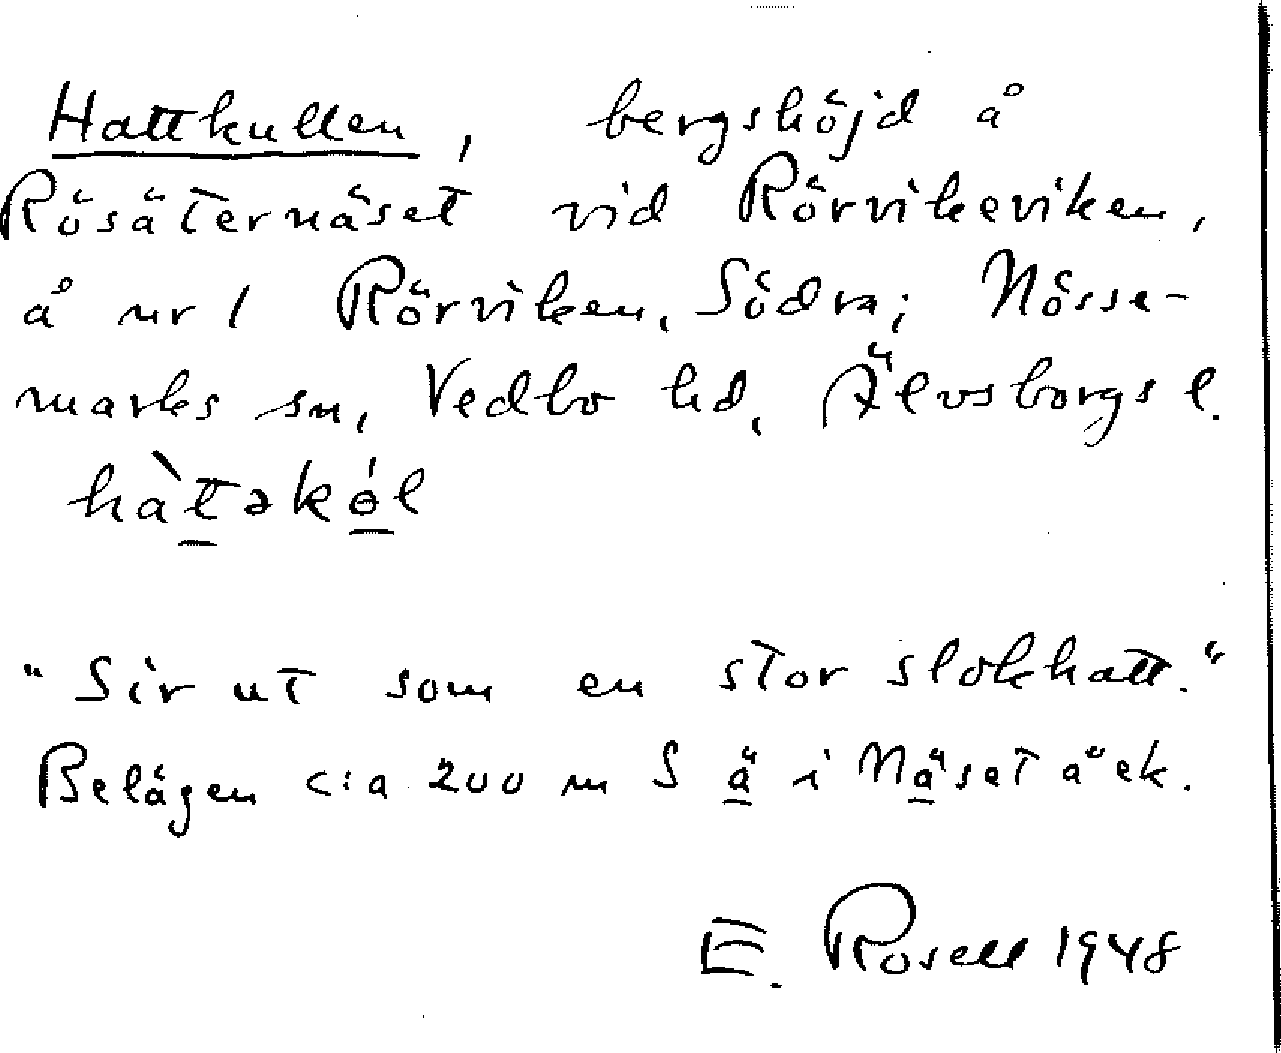 Hattkullen, bergshöjd å
Rösäternäset vid Rörvikeviken,
å nr 1 Rörviken, Södra; Nösse-
marks sn, Vedbo hd, Älvsborgs l.
hàt̠əkɵ̠́l
"Sir ut som en stor slokhatt."
Belägen c:a 200 m S ä̠ i Nä̠set å ek.
E. Rosell 1948